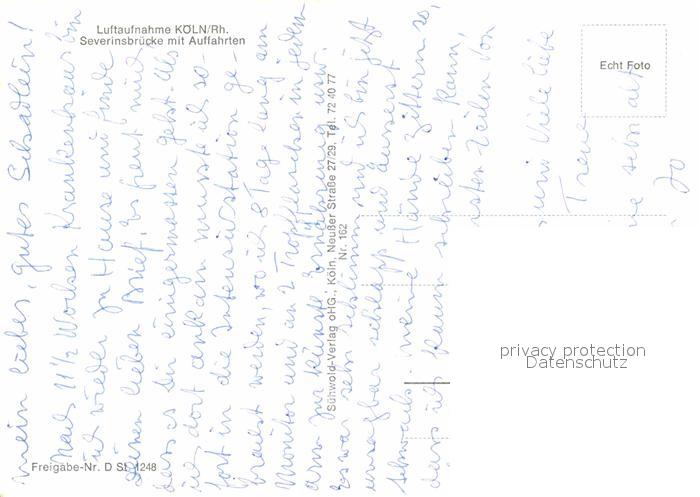 Luftaufnahme KÖLN/Rh.
Severinsbrücke mit Auffahrten
Echt Foto
Mein lieber, gutes
Nach 11½ Wochen Krankenhaus bin
ich wieder zu Hause und finde
Deinen lieben Brief. Es freut mich,
dass es Dir einigermassen geht. Als
ich dort ankam musste ich so-
fort in die Intensivstation ge-
bracht werden, wo ich 8 Tage lang am
Monitor und an 2 Tropfflaschen in jedem
Arm zur künstl. Ernährung usw.
Es war sehr schlimm und ich bin jetzt
unsagbar schlapp und äusserst
schwach. Meine Hände zittern so,
dass ich kaum schreiben kann,
Zeilen von
und viele liebe
sehr alt
Jo
Sühwold-Verlag oHG., Köln, Neußer Straße 27/29, Tel. 72 40 77
Nr. 162
Freigabe-Nr. D St. 1248
privacy protection
Datenschutz